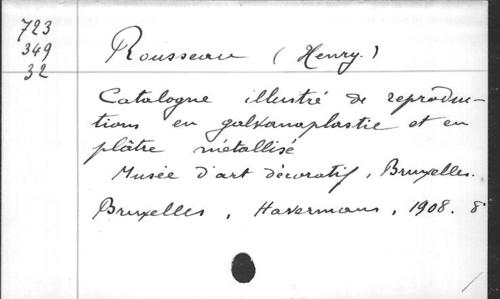 723
349
32
Rousseau (Henry.)
Catalogue illustré de reproduc-
tions en galvanoplastie et en
plâtre métallisé
Musée d'art décoratif, Bruxelles.
Bruxelles, Havermans, 1908. 8°